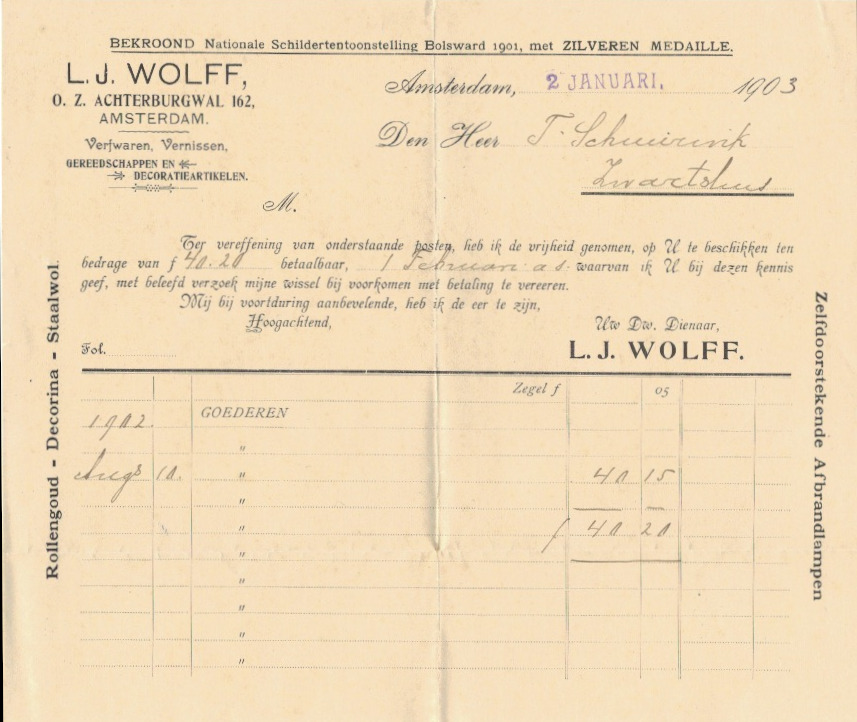 BEKROOND Nationale Schildertentoonstelling Bolsward 1901, met ZILVEREN MEDAILLE.
L. J. WOLFF,
O. Z. ACHTERBURGWAL 162,
AMSTERDAM.
Verfwaren, Vernissen,
GEREEDSCHAPPEN EN
DECORATIEARTIKELEN.
Amsterdam, 2 JANUARI. 1903
Den Heer T. Schuurink
Zwartsluis
M.
Ter vereffening van onderstaande posten, heb ik de vrijheid genomen, op U te beschikken ten
bedrage van f 40.20 betaalbaar, 1 Februari a.s. waarvan ik U bij dezen kennis
geef, met beleefd verzoek mijne wissel bij voorkomen met betaling te vereeren.
Mij bij voortduring aanbevelende, heb ik de eer te zijn,
Hoogachtend,
Uw Dw. Dienaar,
Fol.
L. J. WOLFF.
Rollengoud - Decorina - Staalwol.
Zelfdoorstekende Afbrandlampen
Zegel f 05
1902. GOEDEREN
"
Augs 10. " 40 15
"
" f 40 20
"
"
"
"
"